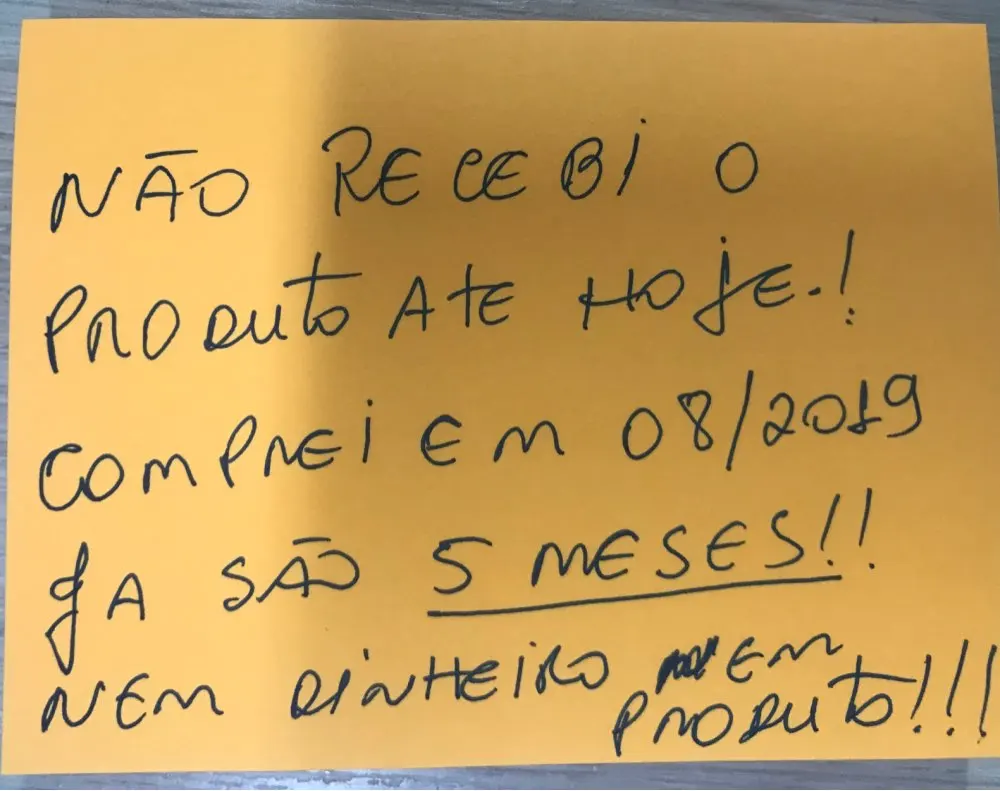 NÃO RECEBI O
PRODUTO ATE HOJE.!
COMPREI EM 08/2019
JA SÃO 5 MESES!!
NEM DINHEIRO NEM
PRODUTO!!!